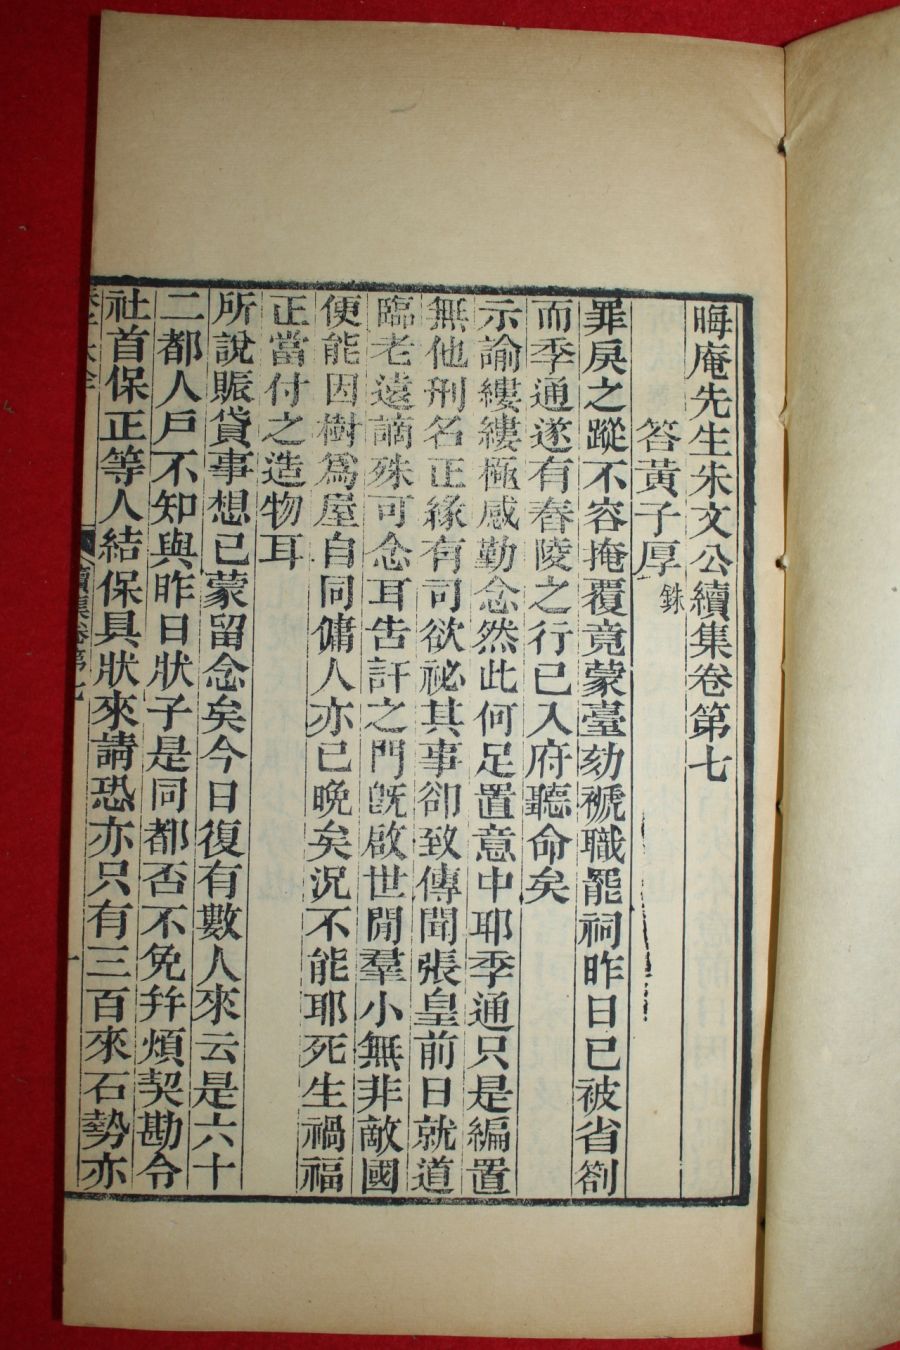 晦庵先生朱文公續集卷第七
答黃子厚銖
罪戾之蹤不容掩覆竟蒙臺劾褫職罷祠昨日已被省劄
而季通遂有舂陵之行已入府聽命矣
示諭縷縷極感勤念然此何足置意中耶季通只是編置
無他刑名正緣有司欲祕其事卻致傳聞張皇前日就道
臨老遠謫殊可念耳告訐之門旣啟世閒羣小無非敵國
便能因樹爲屋自同傭人亦已晚矣況不能耶死生禍福
正當付之造物耳
所說賑貸事想已蒙留念矣今日復有數人來云是六十
二都人戶不知與昨日狀子是同都否不免幷煩契勘令
社首保正等人結保具狀來請恐亦只有三百來石勢亦
續集卷第七
一